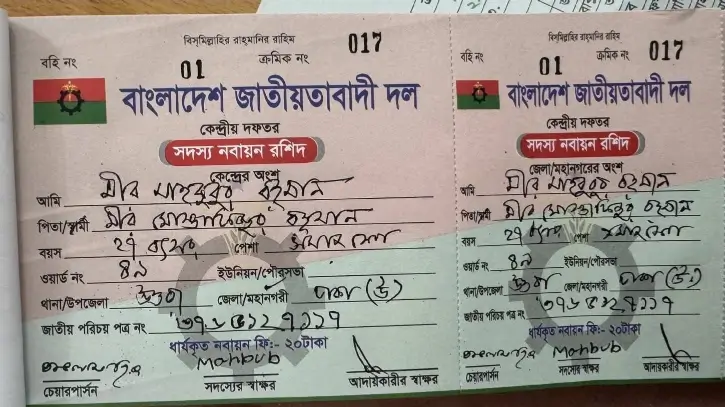 বিসমিল্লাহির রাহমানির রাহিম
বহি নং 01 ক্রমিক নং 017
বাংলাদেশ জাতীয়তাবাদী দল
কেন্দ্রীয় দফতর
সদস্য নবায়ন রশিদ
কেন্দ্রের অংশ
আমি মীর মাহবুবুর রহমান
পিতা/স্বামী মীর মোস্তাফিজুর রহমান
বয়স ২৭ বৎসর পেশা
ওয়ার্ড নং ৪৯ ইউনিয়ন/পৌরসভা
থানা/উপজেলা উত্তরা জেলা/মহানগরী ঢাকা (উঃ)
জাতীয় পরিচয় পত্র নং
ধার্যকৃত নবায়ন ফি:- ২০টাকা
Mahbub
চেয়ারপার্সন সদস্যের স্বাক্ষর আদায়কারীর স্বাক্ষর
বিসমিল্লাহির রাহমানির রাহিম
বহি নং 01 ক্রমিক নং 017
বাংলাদেশ জাতীয়তাবাদী দল
কেন্দ্রীয় দফতর
সদস্য নবায়ন রশিদ
জেলা/মহানগরের অংশ
আমি মীর মাহবুবুর রহমান
পিতা/স্বামী মীর মোস্তাফিজুর রহমান
বয়স ২৭ বৎসর পেশা
ওয়ার্ড নং ৪৯ ইউনিয়ন/পৌরসভা
থানা/উপজেলা উত্তরা জেলা/মহানগরী ঢাকা (উঃ)
জাতীয় পরিচয় পত্র নং
ধার্যকৃত নবায়ন ফি:- ২০টাকা
Mahbub
চেয়ারপার্সন সদস্যের স্বাক্ষর আদায়কারীর স্বাক্ষর